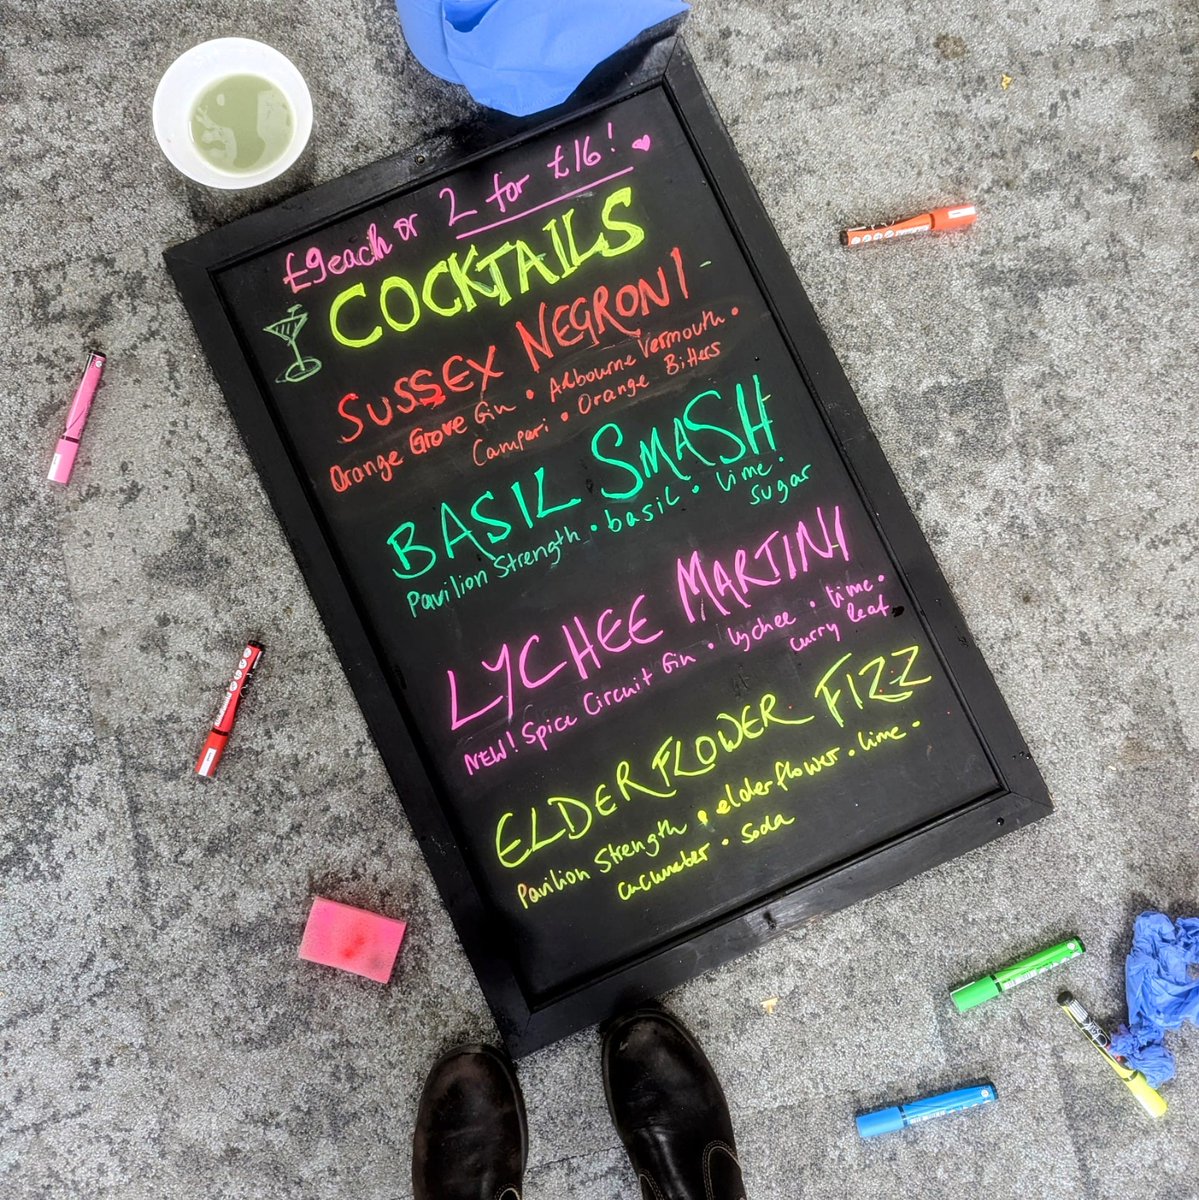 £9 each or 2 for £16!
COCKTAILS
SUSSEX NEGRONI
Orange Grove Gin • Albourne Vermouth •
Campari • Orange Bitters
BASIL SMASH
Pavilion Strength • basil • lime •
sugar
LYCHEE MARTINI
NEW! Spice Circuit Gin • lychee • lime •
curry leaf
ELDERFLOWER FIZZ
Pavilion Strength • elderflower • lime •
cucumber • soda